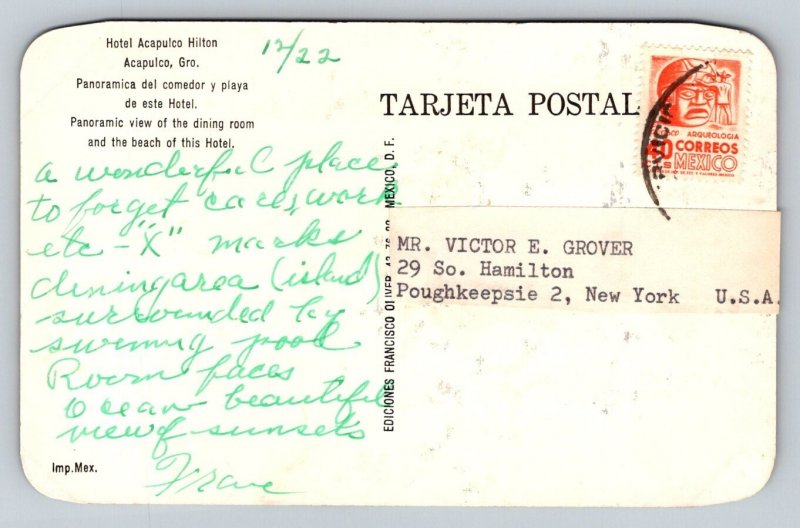 Hotel Acapulco Hilton
Acapulco, Gro.
Panoramica del comedor y playa
de este Hotel.
Panoramic view of the dining room
and the beach of this Hotel.
12/22
TARJETA POSTAL
ARQUEOLOGIA
CORREOS
MEXICO
a wonderful place
to forget cares, work
etc - "X" marks
diningarea (island)
surrounded by
swimming pool
Room faces
Ocean beautiful
view of sunsets
EDICIONES FRANCISCO OLIVER MEXICO, D. F.
MR. VICTOR E. GROVER
29 So. Hamilton
Poughkeepsie 2, New York U.S.A.
Imp.Mex.